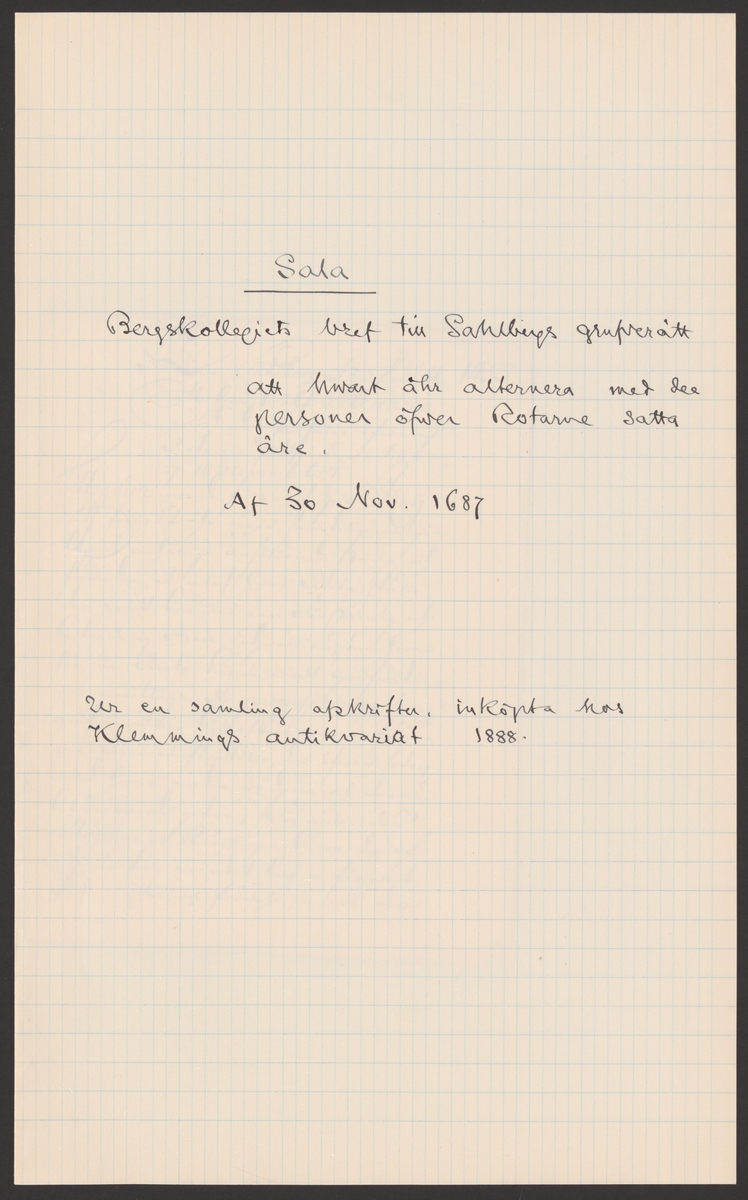 Sala
Bergskollegiets bref till Sahlbergs grufverätt
att hwart åhr alternera med dee
personer öfwer Rotarne satta
äre.
Af 30 Nov. 1687
Ur en samling afskrifter, inköpta hos
Klemmings antikvariat 1888.